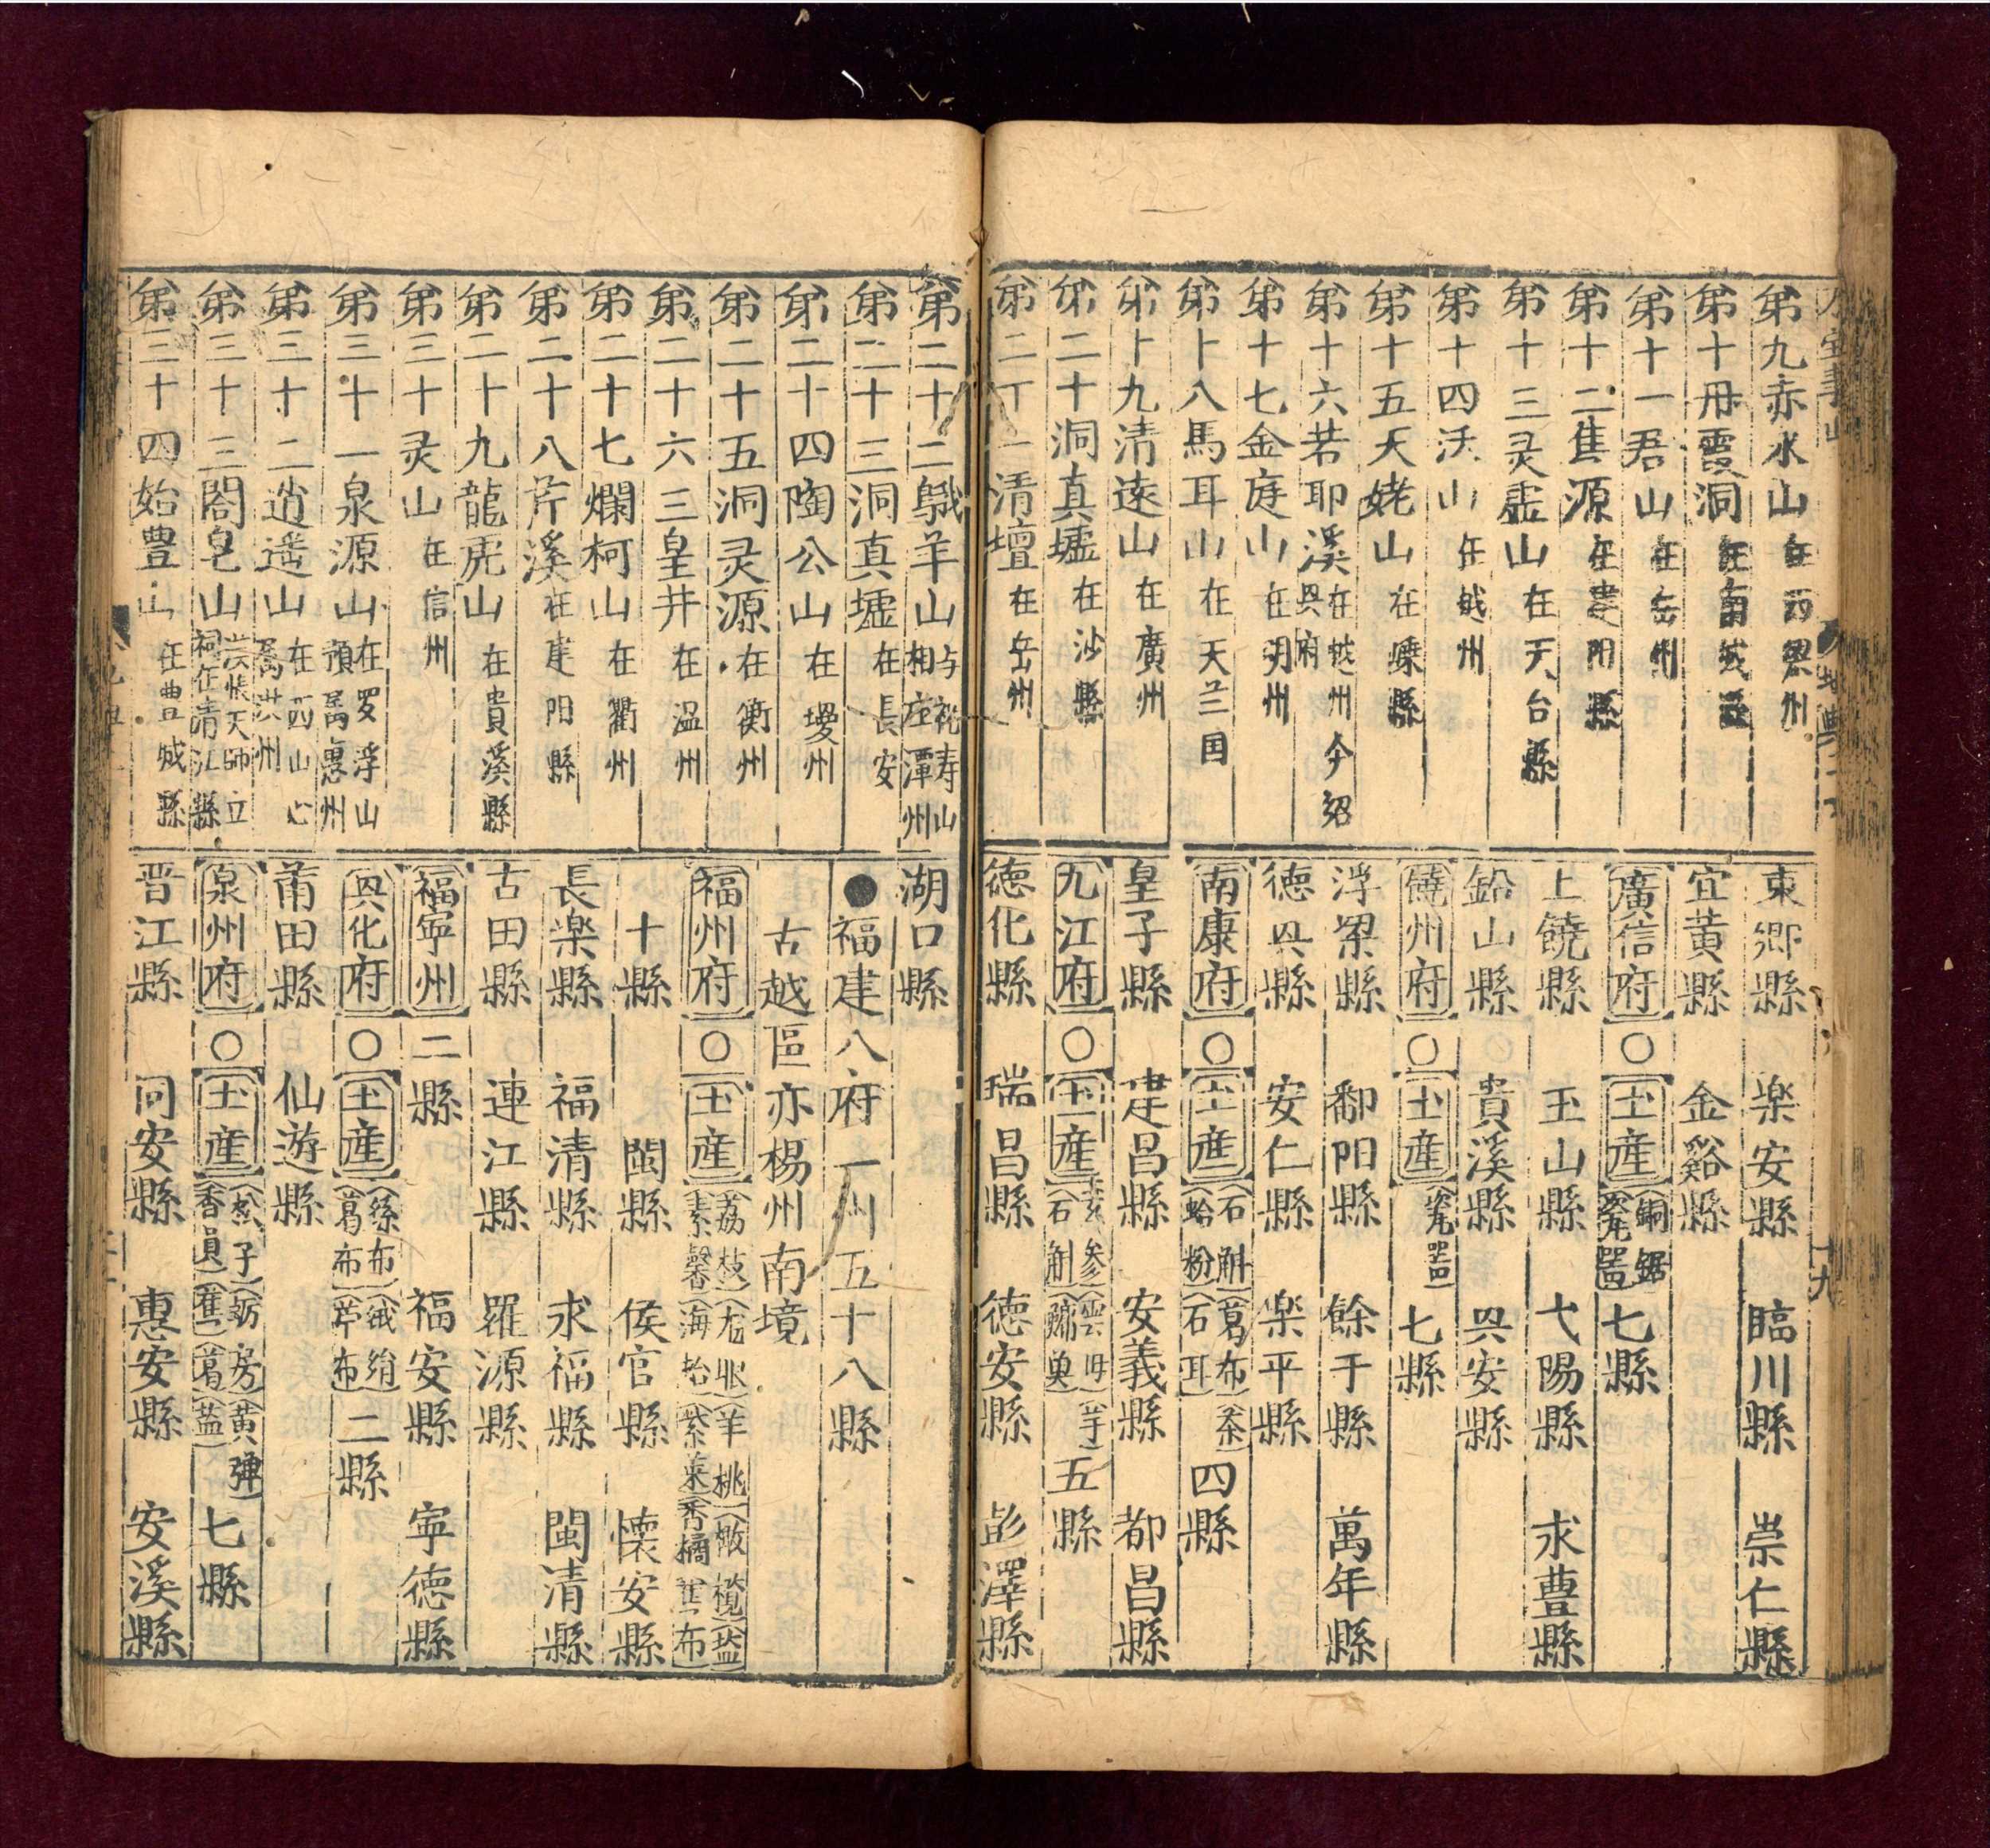 第九赤水山在西梁州
第十丹霞洞在南城縣
第十一君山在岳州
第十二隹源在建阳縣
第十三灵虚山在天台縣
第十四沃山在越州
第十五天姥山在嵊縣
第十六若耶溪在越州今紹
㒷府
第十七金庭山在明州
第十八馬耳山在天兰国
第十九清遠山在廣州
第二十洞真墟在沙縣
第二十一清壇在岳州
東鄉縣 楽安縣 臨川縣 崇仁縣
宜黃縣 金谿縣
廣信府 ○ 土産 銅 鋸 瓷器 七縣
上饒縣 玉山縣 弋陽縣 求豊縣
鉛山縣 貴溪縣 㒷安縣
饒州府 ○ 土産 瓷器 七縣
浮梁縣 鄱阳縣 餘于縣 萬年縣
德㒷縣 安仁縣 楽平縣
南康府 ○ 土産 石斛 蛤粉 葛布 石耳 茶 四縣
皇子縣 建昌縣 安義縣 都昌縣
九江府 ○ 土産 玄参 石斛 雲母 五縣
德化縣 瑞昌縣 德安縣 彭澤縣
第二十二鵝羊山与祝寿山
相在潭州
第二十三洞真墟在長安
第二十四陶公山在
第二十五洞灵源在衡州
第二十六三皇井在温州
第二十七爛柯山在衢州
第二十八芹溪在建阳縣
第二十九龍虎山在貴溪縣
第三十灵山在信州
第三十一泉源山在罗浮山
属惠州
第三十二逍遥山在西山
属洪州
第三十三閤皂山張天師立
祠在清江縣
第三十四始豊山在豊城縣
湖口縣
●福建八府一州五十八縣
古越區亦楊州南境
福州府 ○ 土産 荔枝 素馨 海 羊桃 紫菜 橄欖 秀橘 盐 蕉布
十縣 閩縣 侯官縣 懐安縣
長楽縣 福清縣 求福縣 閩清縣
古田縣 連江縣 羅源縣
福寧州 二縣 福安縣 寧德縣
㒷化府 ○ 土産 絲布 葛布 絹 苧布 二縣
莆田縣 仙遊縣
泉州府 ○ 土産 松子 香員 蛎房 蕉 葛 黃彈 盐 七縣
晋江縣 同安縣 惠安縣 安溪縣